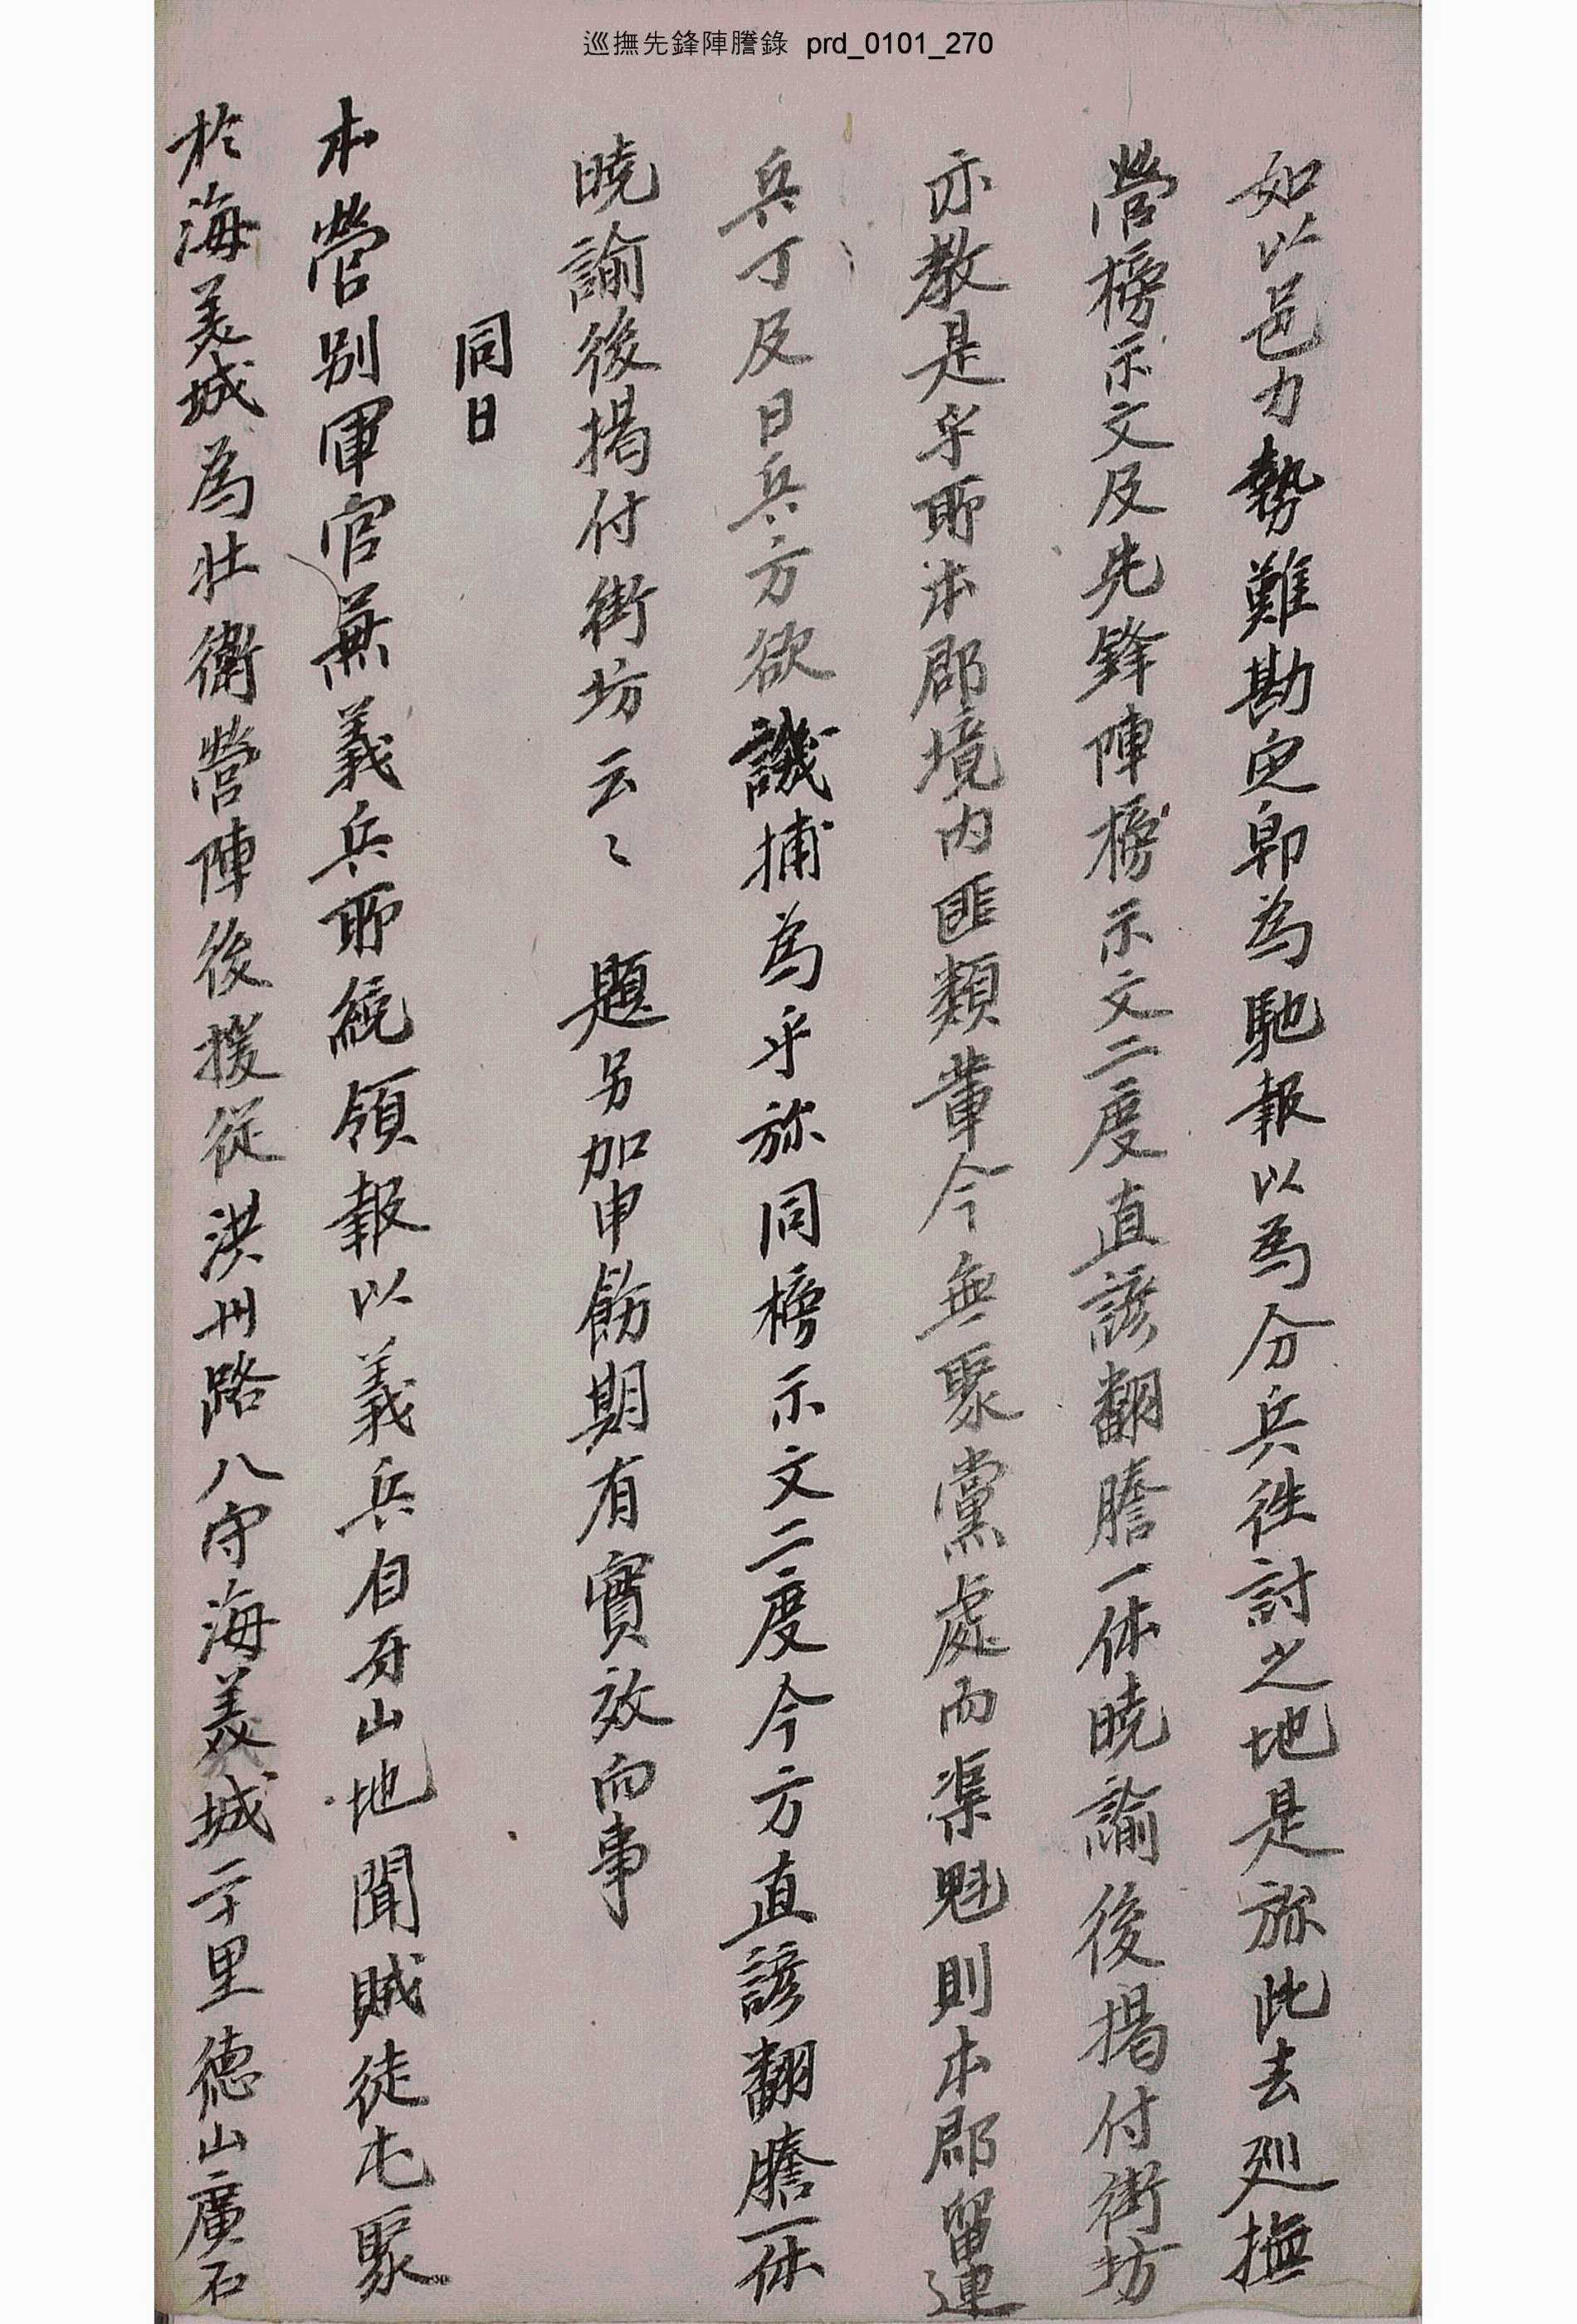 巡撫先鋒陣謄錄 prd_0101_270
如以邑力勢難勘定卽為馳報以為分兵徃討之地是旀此去廵撫
營榜示文及先鋒陣榜示文二度直諺翻謄一体曉諭後揭付街坊
亦教是乎所本郡境內匪類輩今無聚黨處而渠魁則本郡留連
兵丁及日兵方欲譏捕為乎旀同榜示文二度今方直諺翻謄一体
曉諭後揭付街坊云〻 題另加申飭期有實效向事
同日
本營別軍官兼義兵所統領報以義兵自牙山地聞賊徒屯聚
於海美城為壯衛營陣後援從洪州路入守海美城二十里德山廣石